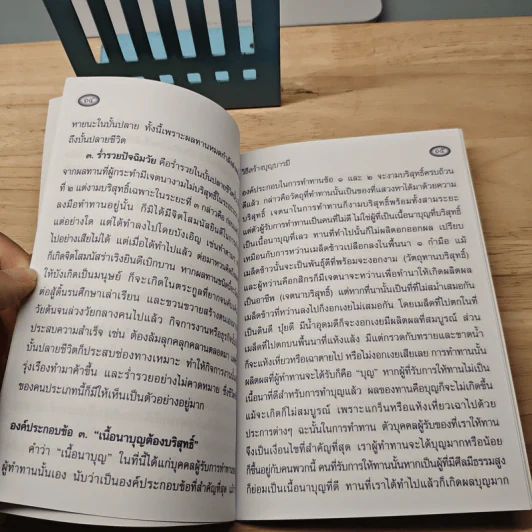 ๑๔
หายนะในบั้นปลาย ทั้งนี้เพราะผลทานหมดกำลังส่ง
ถึงบั้นปลายชีวิต
๓. ร่ำรวยปัจฉิมวัย คือร่ำรวยในบั้นปลายชีวิต
จากผลทานที่ผู้กระทำมีเจตนางามไม่บริสุทธิ์ในระยะ
ที่ ๒ แต่งามบริสุทธิ์เฉพาะในระยะที่ ๓ กล่าวคือ
ลงมือทำทานอยู่นั้น ก็มิได้มีจิตโสมนัสยินดีในการ
แต่อย่างใด แต่ได้ทำลงไปโดยบังเอิญ เช่นทำตาม
ไปอย่างเสียไม่ได้ แต่เมื่อได้ทำไปแล้ว ต่อมาหวน
ก็เกิดจิตโสมนัสร่าเริงยินดีเบิกบาน หากผลทาน
ให้บังเกิดเป็นมนุษย์ ก็จะเกิดในตระกูลที่ยากจน
ต่อสู้ดิ้นรนศึกษาเล่าเรียน และขวนขวายสร้างตน
วัยต้นจนล่วงวัยกลางคนไปแล้ว กิจการงานหรือธุรกิจ
ประสบความสำเร็จ เช่น ต้องล้มลุกคลุกคลานตลอดมา
บั้นปลายชีวิตก็ประสบช่องทางเหมาะ ทำให้กิจการนั้น
รุ่งเรืองทำมาค้าขึ้น และร่ำรวยอย่างไม่คาดหมาย ซึ่งชีวิต
ของคนประเภทนี้ก็มีให้เห็นเป็นตัวอย่างอยู่มาก
องค์ประกอบข้อ ๓. “เนื้อนาบุญต้องบริสุทธิ์”
คำว่า “เนื้อนาบุญ” ในที่นี้ได้แก่บุคคลผู้รับการทำทาน
ผู้ทำทานนั้นเอง นับว่าเป็นองค์ประกอบข้อที่สำคัญที่สุด
๑๕
วิธีสร้างบุญบารมี
องค์ประกอบในการทำทานข้อ ๑ และ ๒ จะงามบริสุทธิ์ครบถ้วน
ดีแล้ว กล่าวคือวัตถุที่ทำทานนั้นเป็นของที่แสวงหาได้มาด้วยความ
บริสุทธิ์ เจตนาในการทำทานก็งามบริสุทธิ์พร้อมทั้งสามระยะ
แต่ตัวผู้รับการทำทานเป็นคนที่ไม่ดี ไม่ใช่ผู้ที่เป็นเนื้อนาบุญที่บริสุทธิ์
เป็นเนื้อนาบุญที่เลว ทานที่ทำไปนั้นก็ไม่ผลิดอกออกผล เปรียบ
เหมือนกับการหว่านเมล็ดข้าวเปลือกลงในพื้นนา ๑ กำมือ แม้
เมล็ดข้าวนั้นจะเป็นพันธุ์ดีที่พร้อมจะงอกงาม (วัตถุทานบริสุทธิ์)
และผู้หว่านคือกสิกรก็มีเจตนาจะหว่านเพื่อทำนาให้เกิดผลิตผล
เป็นอาชีพ (เจตนาบริสุทธิ์) แต่หากที่นานั้นเป็นที่ที่ไม่สม่ำเสมอกัน
เมล็ดข้าวที่หว่านลงไปก็งอกเงยไม่เสมอกัน โดยเมล็ดที่ไปตกในที่
เป็นดินดี ปุ๋ยดี มีน้ำอุดมดีก็จะงอกเงยมีผลิตผลที่สมบูรณ์ ส่วน
เมล็ดที่ไปตกบนพื้นนาที่แห้งแล้ง มีแต่กรวดกับทรายและขาดน้ำ
ก็จะแห้งเหี่ยวหรือเฉาตายไป หรือไม่งอกเงยเสียเลย การทำทานนั้น
ผลิตผลที่ผู้ทำทานจะได้รับก็คือ “บุญ” หากผู้ที่รับการให้ทานไม่เป็น
เนื้อนาที่ดีสำหรับการทำบุญแล้ว ผลของทานคือบุญก็จะไม่เกิดขึ้น
แม้จะเกิดก็ไม่สมบูรณ์ เพราะแกร็นหรือแห้งเหี่ยวเฉาไปด้วย
ประการต่างๆ ฉะนั้นในการทำทาน ตัวบุคคลผู้รับของที่เราให้ทาน
จึงเป็นเงื่อนไขที่สำคัญที่สุด เราผู้ทำทานจะได้บุญมากหรือน้อย
ก็ขึ้นอยู่กับคนพวกนี้ คนที่รับการให้ทานนั้นหากเป็นผู้ที่มีศีลมีธรรมสูง
ก็ย่อมเป็นเนื้อนาบุญที่ดี ทานที่เราได้ทำไปแล้วก็เกิดผลบุญมาก